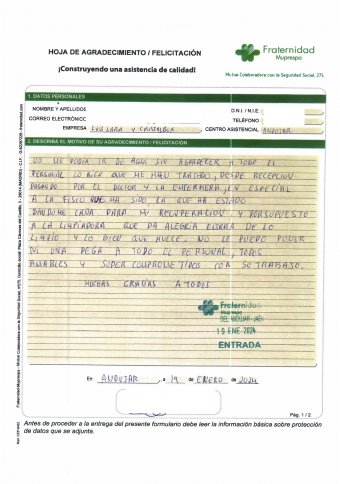 HOJA DE AGRADECIMIENTO / FELICITACIÓN
¡Construyendo una asistencia de calidad!
Fraternidad
Muprespa
Mutua Colaboradora con la Seguridad Social, 275
1. DATOS PERSONALES
NOMBRE Y APELLIDOS
D.N.I. / N.I.E.
CORREO ELECTRÓNICO
TELÉFONO
EMPRESA
CENTRO ASISTENCIAL ANDUJAR
2. DESCRIBA EL MOTIVO DE SU AGRADECIMIENTO / FELICITACIÓN
NO ME PODIA IR DE AQUI SIN AGRADECER A TODO EL
PERSONAL LO BIEN QUE ME HAN TRATADO, DESDE RECEPCION
PASANDO POR EL DOCTOR Y LA ENFERMERA, EN ESPECIAL
A LA FISIO QUE HA SIDO LA QUE HA ESTADO
DANDOME CAÑA PARA MI RECUPERACION Y PORSUPUESTO
A LA LIMPIADORA QUE DA ALEGRIA ENTRAR DE LO
LIMPIO Y LO BIEN QUE HUELE. NO LE PUEDO PONER
NI UNA PEGA A TODO EL PERSONAL, TODOS
AMABLES Y SUPER COMPROMETIDOS CON SU TRABAJO.
MUCHAS GRACIAS A TODOS
Fraternidad
Muprespa
DEL. ANDUJAR - JAÉN
19 ENE 2024
ENTRADA
En ANDUJAR, a 19 de ENERO de 2024
Pág. 1 / 2
Antes de proceder a la entrega del presente formulario debe leer la información básica sobre protección
de datos que se adjunta.